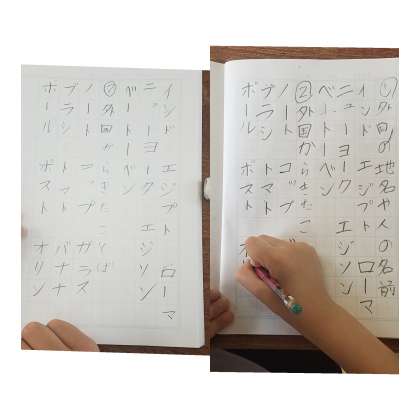 インド エジプト ローマ
ニューヨーク エジソン
ベートーベン
②外国からきたことば
ノート コップ ガラス
ブラシ トマト バナナ
ボール ポスト オリン
①外国の地名や人の名前
インド エジプト ローマ
ニューヨーク エジソン
ベートーベン
②外国からきたこ
ノート コップ
ブラシ トマト
ボール ポスト オ